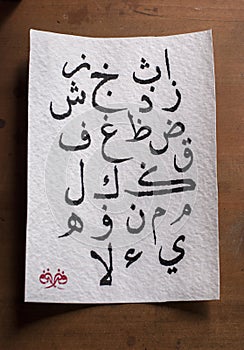 ا ث خ ز
ز ذ ش
ض ظ غ ف
ق
ك ك ل
م م ن و ه
ي ء لا